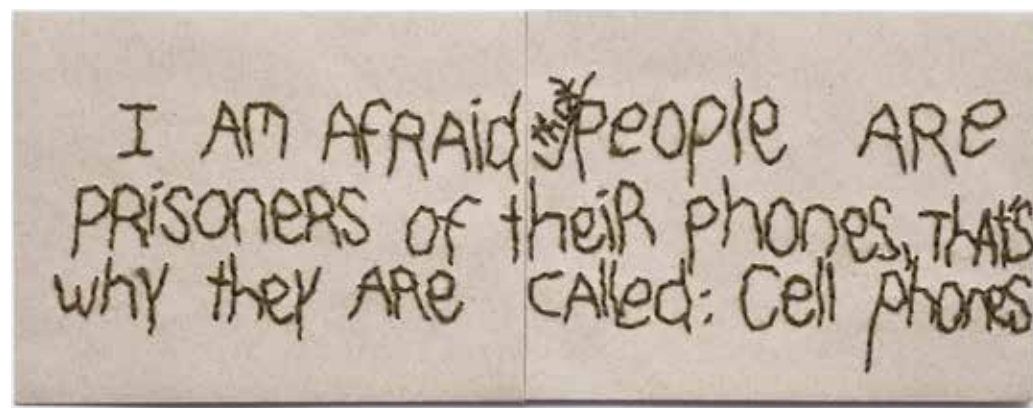 I AM AfRAid that PeOple ARe
PRiSONeRS of theiR phones, ThAt'S
why they ARe CAlled: Cell phones